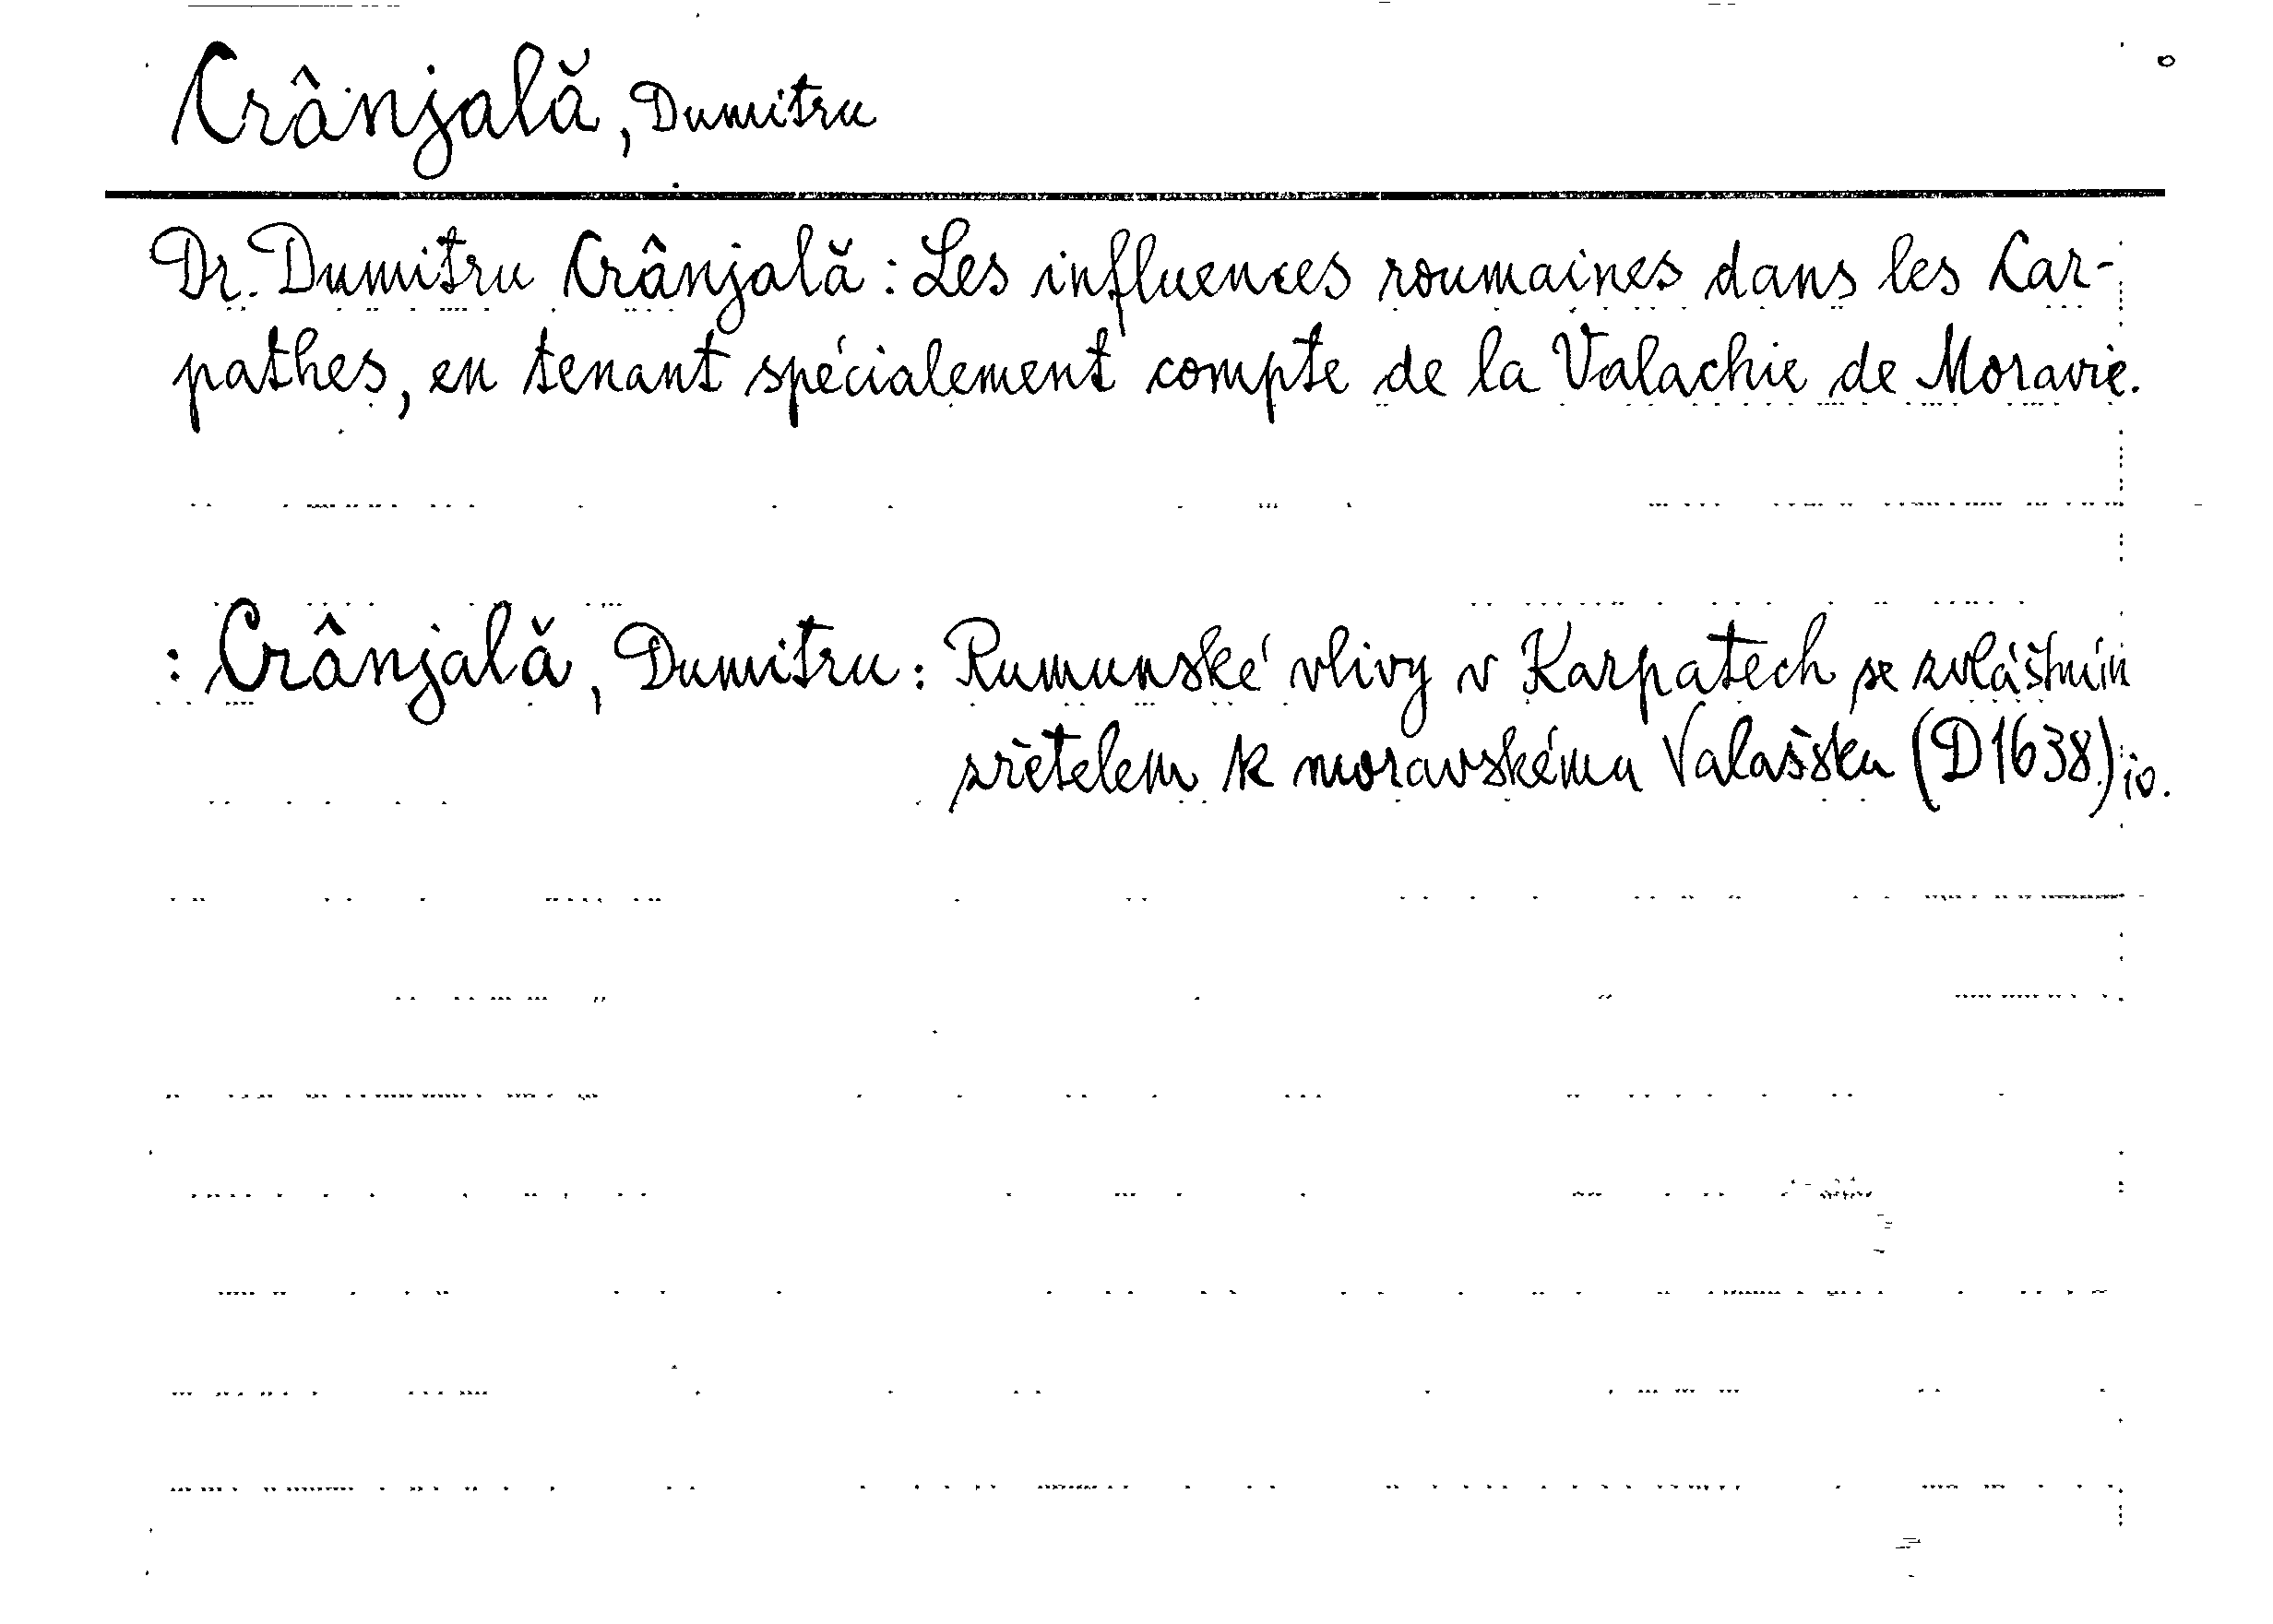 Crânjală, Dumitru
Dr. Dumitru Crânjală: Les influences roumaines dans les Car-
pathes, en tenant spécialement compte de la Valachie de Moravie.
: Crânjală, Dumitru: Rumunské vlivy v Karpatech se zvláštním
zřetelem k moravskému Valašsku (D1638)